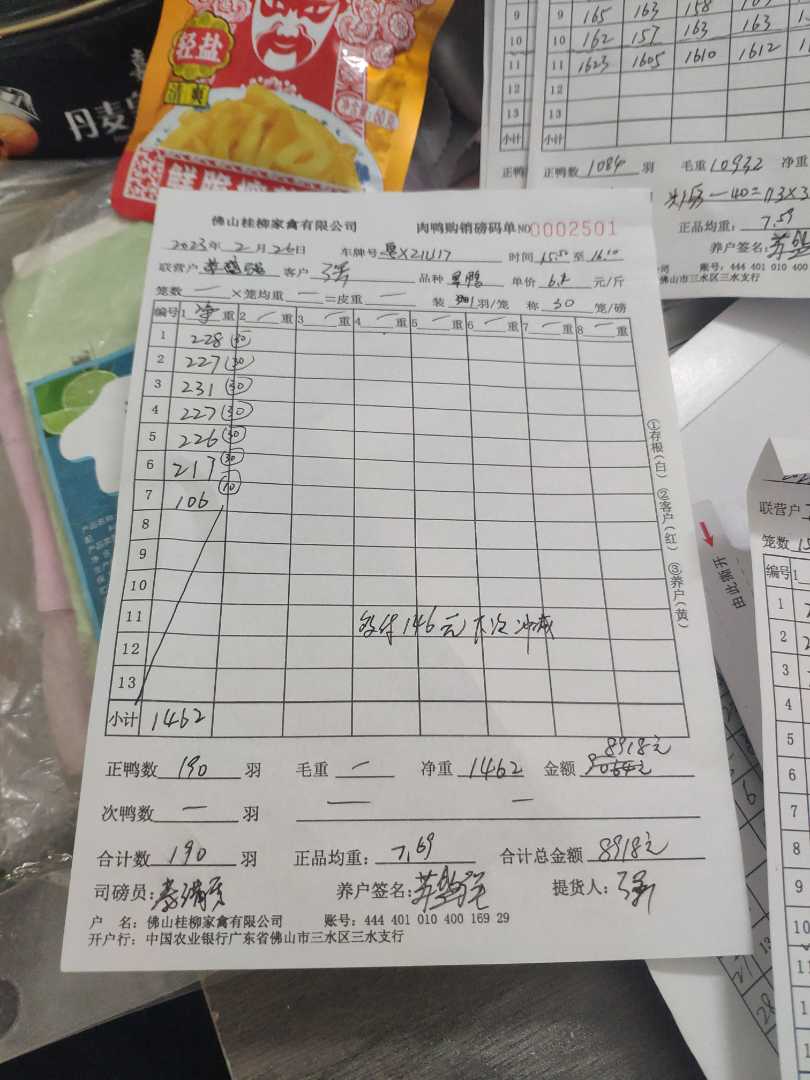 轻盐
丹麦
9 165 163 158
10 162 157 163 163
11 1623 1605 1610 1612
12
13
小计
正鸭数 1084 羽 毛重 10932 净重
正品均重: 7.59
养户签名:
账号: 444 401 010 400
佛山市三水区三水支行
佛山桂柳家禽有限公司 肉鸭购销磅码单NO 0002501
2023年 2月 26日 车牌号 粤X21U17 时间 15:50 至 16:10
联营户 客户 品种 单价 元/斤
笼数 一 ×笼均重 一 =皮重 一 装 羽/笼 称 30 笼/磅
编号 1 净 重 2 一 重 3 一 重 4 一 重 5 一 重 6 一 重 7 一 重 8 一 重
1 228 (30)
2 227 (30)
3 231 (30)
4 227 (30)
5 226 (30)
6 217 (30)
7 106 (10)
8
9
10
11 146元下次冲减
12
13
小计 1462
①存根(白) ②客户(红) ③养户(黄)
正鸭数 190 羽 毛重 一 净重 1462 金额 9064元 8918元
次鸭数 一 羽 一 一
合计数 190 羽 正品均重: 7.69 合计总金额 8918元
司磅员: 养户签名: 提货人:
户 名: 佛山桂柳家禽有限公司 账号: 444 401 010 400 169 29
开户行: 中国农业银行广东省佛山市三水区三水支行
由此撕开
联营户
笼数
编号 1
1
2
3
4
5
6
7
8
9
10
11